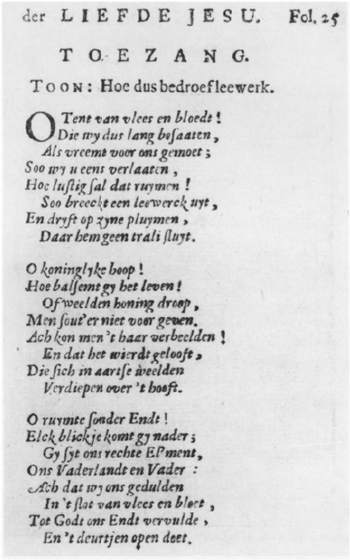 der LIEFDE JESU. Fol. 25
TOEZANG.
TOON: Hoe dus bedroef leewerk.
O Tent van vlees en bloedt!
Die wy dus lang besaaten,
Als vreemt voor ons gemoet;
Soo wy u eens verlaaten,
Hoe lustig sal dat ruymen!
Soo breeckt een leewerck uyt,
En dryft op zyne pluymen,
Daar hem geen trali sluyt.
O koninglyke hoop!
Hoe balsemt gy het leven!
Of weelden honing droop,
Men sout'er niet voor geven.
Ach kon men 't haar verbeelden!
En dat het wierdt gelooft,
Die sich in aartse weelden
Verdiepen over 't hooft.
O ruymte sonder Endt!
Elck blickje komt gy nader;
Gy syt ons rechte EPment,
Ons Vaderlandt en Vader:
Ach dat wy ons gedulden
In 't slot van vlees en bloet,
Tot Godt ons Endt vervulde,
En 't deurtjen open doet.